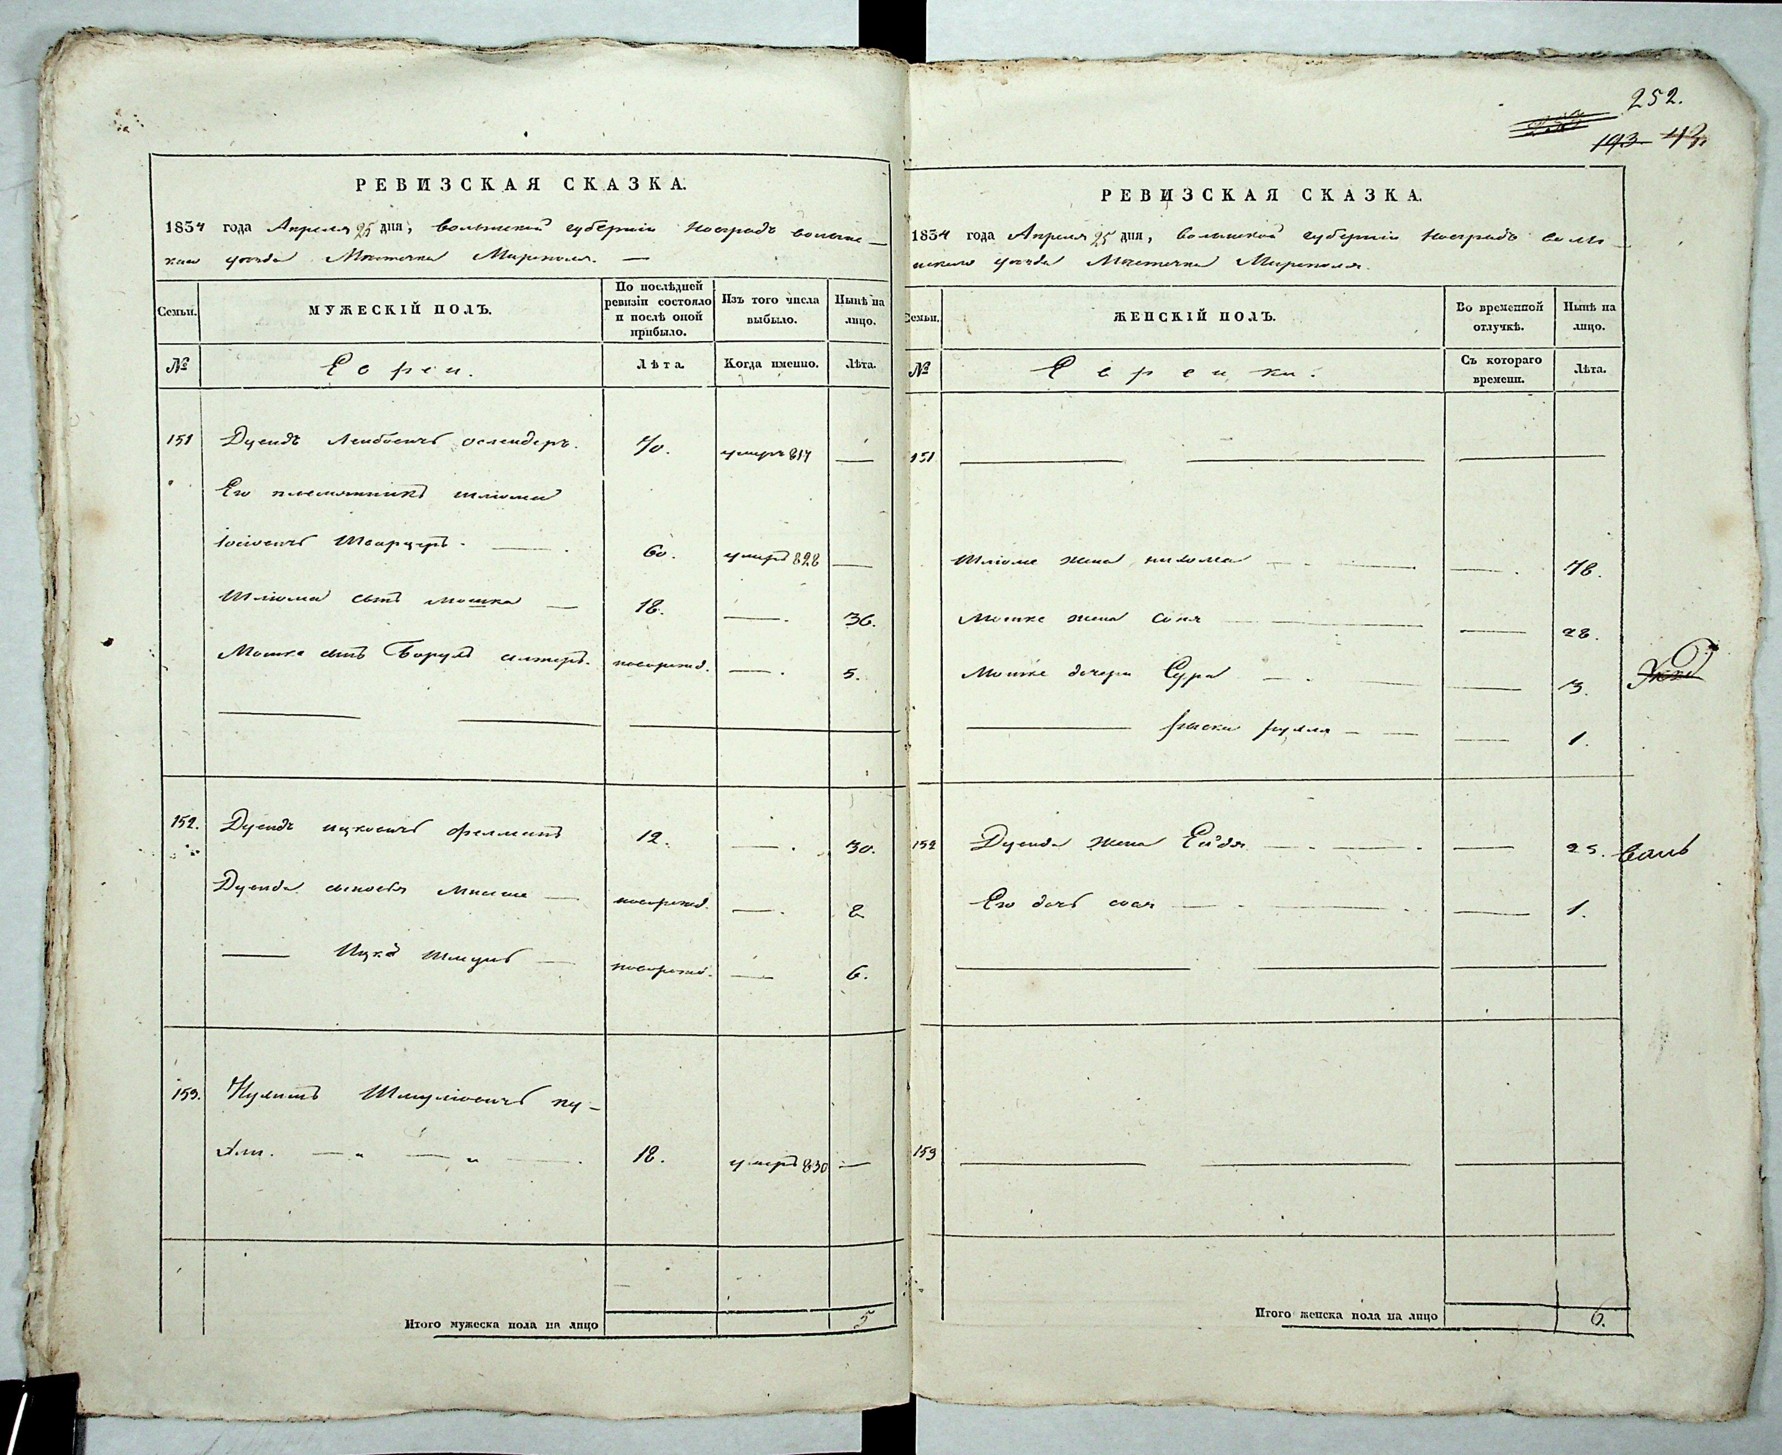 252.
193 43.
РЕВИЗСКАЯ СКАЗКА.
1834 года Апреля 25 дня, волынской губернiи Новградъ волынс–
каго уѣзда Мѣстечка Мирополя.
Семьи. МУЖЕСКІЙ ПОЛЪ. По послѣдней ревизіи состояло и послѣ оной прибыло. Изъ того числа выбыло. Нынѣ на лицо.
№ Евреи. Лѣта. Когда именно. Лѣта.
151 Дувидъ Лейбовичъ 70. умеръ 814 —
Его племянникъ шлiома
Іосiовичъ Шварцеръ. — 60. умеръ 828 —
Шлiома сынъ мошка — 18. — 36.
Мошка сынъ Борухъ алтеръ. новорожд. — 5.
152. Дувидъ ицковичъ фелманъ 12. — 30.
Дувида сыновья — новорожд. — 8
— Ицко Шмуль — новорожд. — 6.
153. Шмулiовичъ ку–
18. умеръ 830 —
Итого мужеска пола на лицо 5
РЕВИЗСКАЯ СКАЗКА.
1834 года Апреля 25 дня, волынской губернiи Новградъ волы–
нскаго уѣзда Мѣстечка Мирополя.
Семьи. ЖЕНСКІЙ ПОЛЪ. Во временной отлучкѣ. Нынѣ на лицо.
№ Еврейки. Съ котораго времени. Лѣта.
151
Шлiоме жена — — 78.
Мошке жена Соня — — 28.
Мошке дочери Сура — — 3.
— — — 1.
152 Дувида жена Ейдя — — 25.
Его дочь — — 1.
153
Итого женска пола на лицо 6.